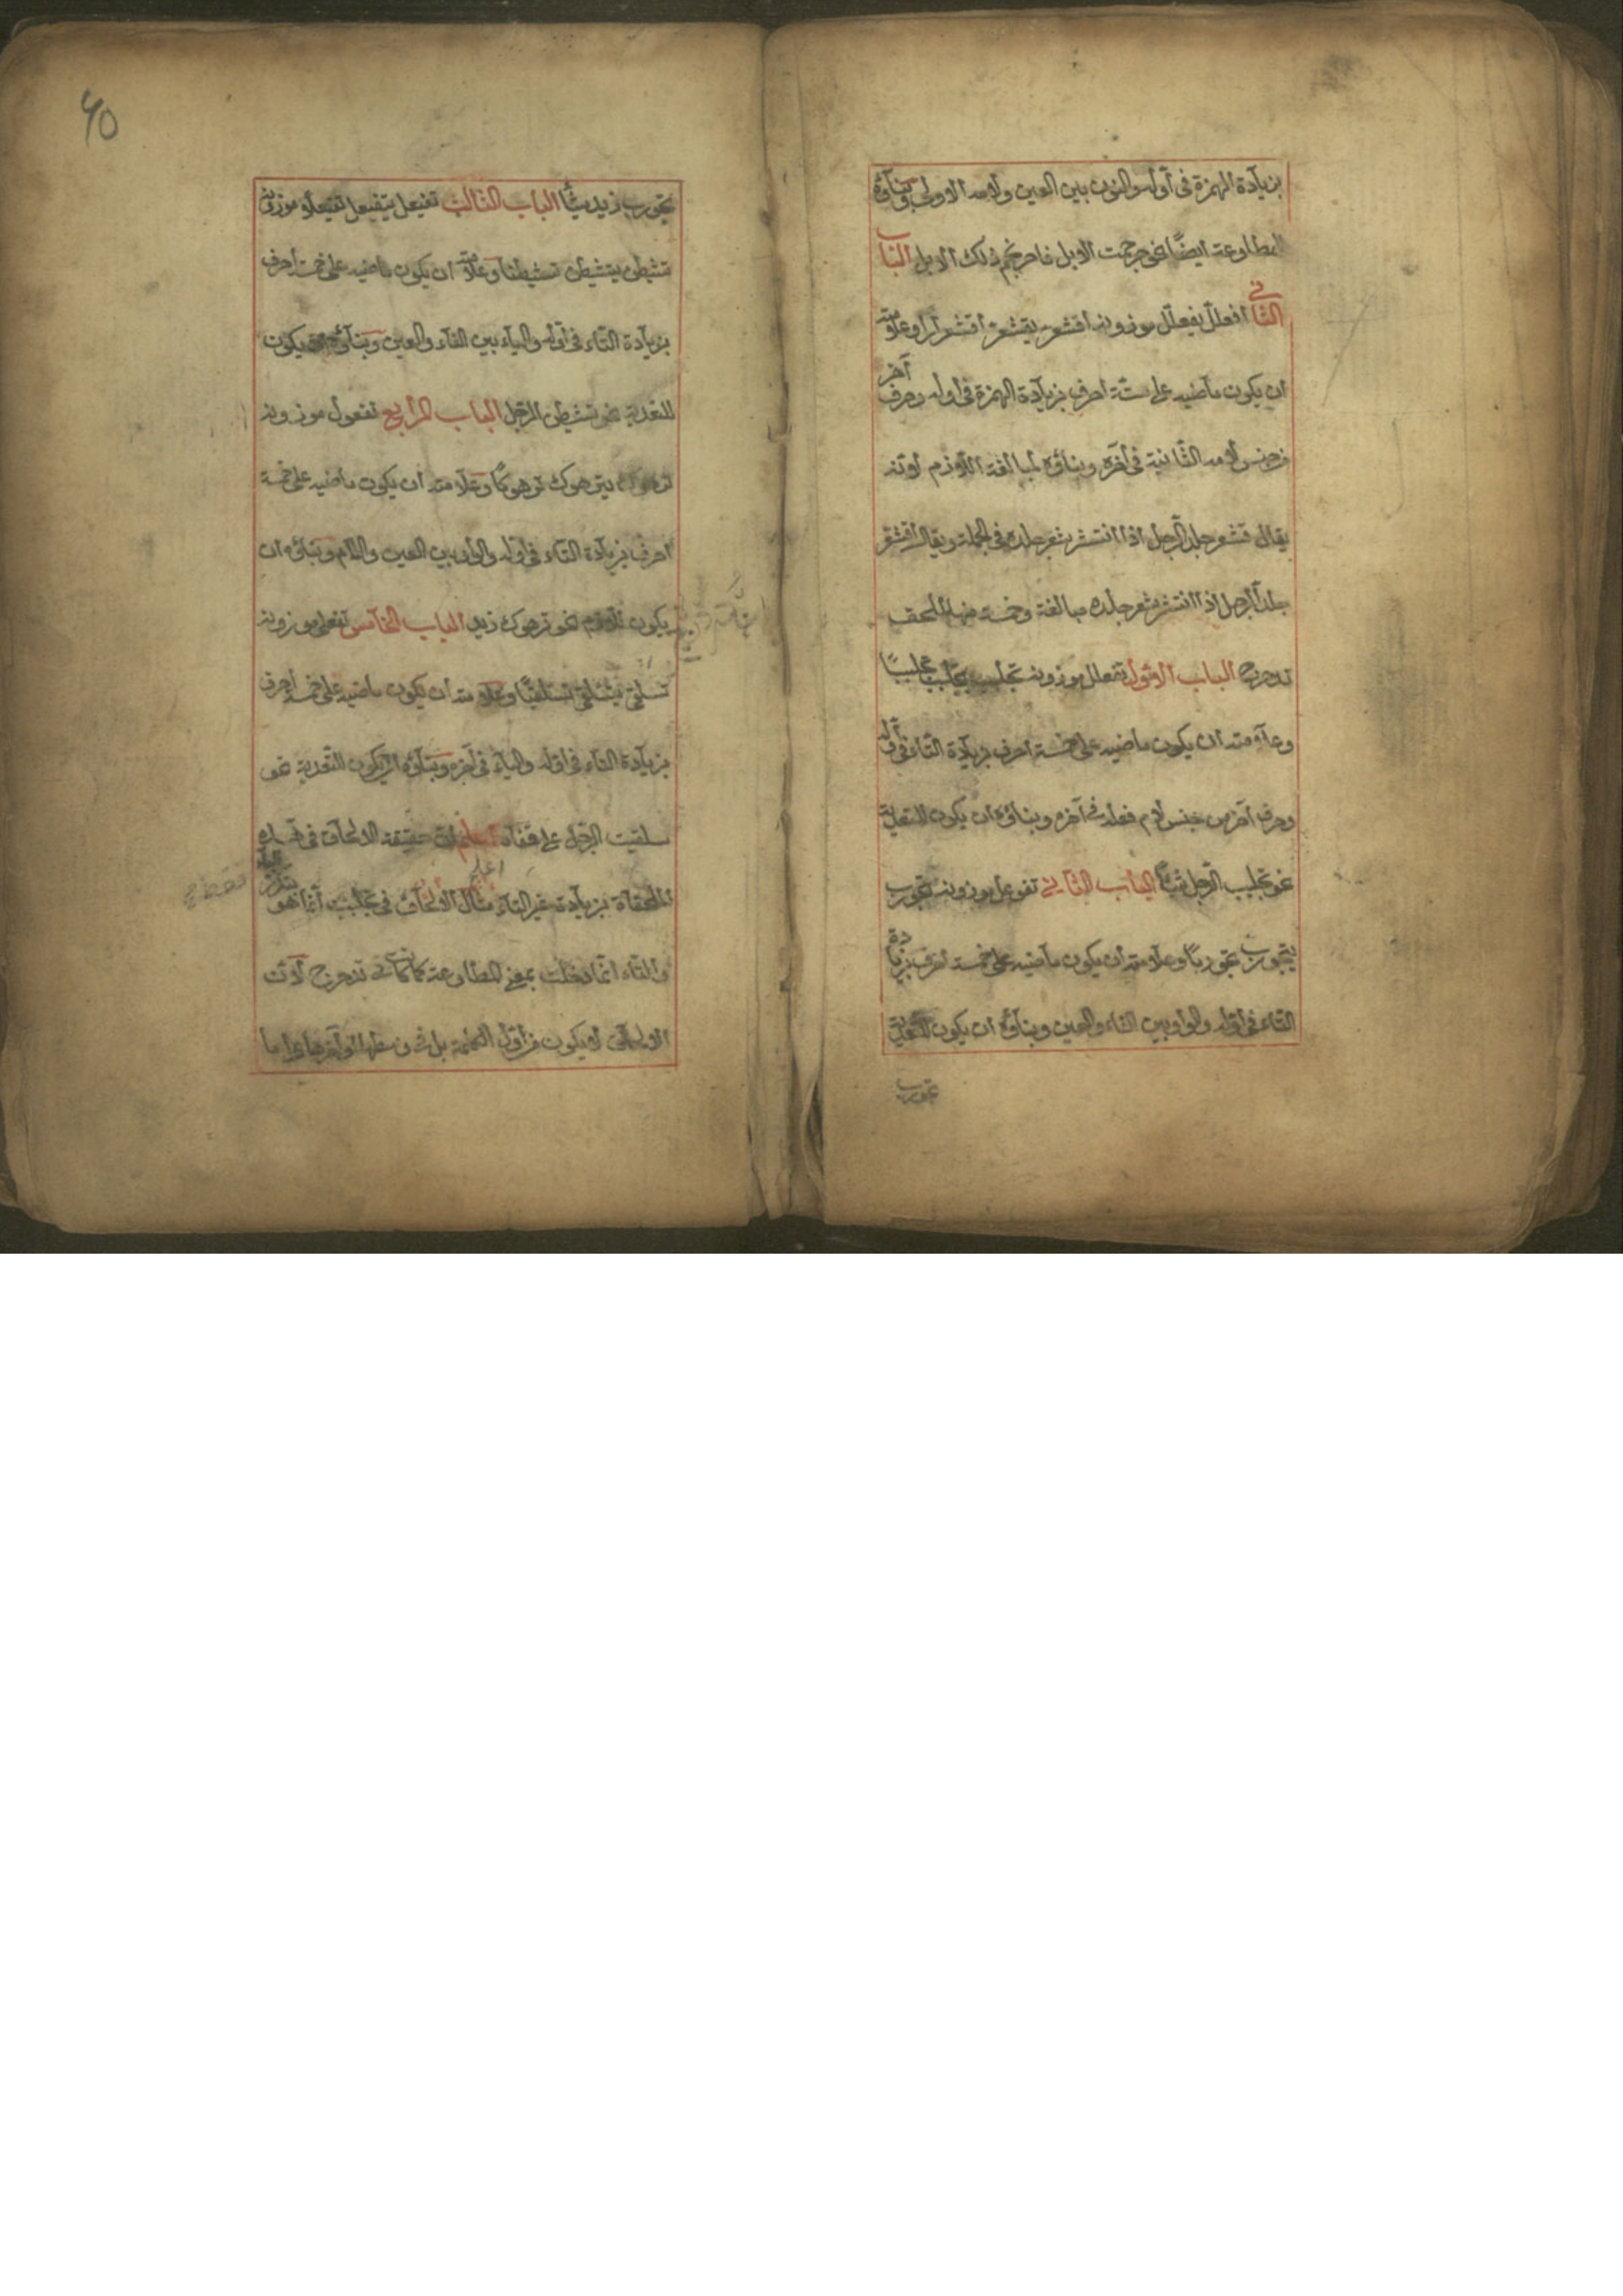 بزيادة الهمزة في أوله والنون بين العين ولامه الاولى وبناؤه
للمطاوعة ايضًا نحو حرجمت الابل فاحرنجم ذلك الابل الباب
الثاني افعللّ يفعللّ موزونه اقشعر يقشعر اقشعرارا وعلامته
ان يكون ماضيه على ستّة احرف بزيادة الهمزة في اوله وحرف آخر
من جنس لامه الثانية في آخره وبناؤه لمبالغة اللازم لانه
يقال قشعر جلد الرجل اذا انتشر شعر جلده في الجملة ويقال اقشعر
جلد الرجل اذا انتشر شعر جلده مبالغة وخمسة منها لملحق
تدحرج الباب الاول تفعلل موزونه تجلبب يتجلبب تجلببًا
وعلامته ان يكون ماضيه على خمسة احرف بزيادة التاء في أوله
وحرف آخر من جنس لام فعله في آخره وبناؤه ان يكون للتعدية
نحو تجلبب الرجل شيئًا الباب الثاني تفوعل موزونه تجورب
يتجورب تجوربًا وعلامته ان يكون ماضيه على خمسة احرف بزيادة
التاء في اوله والواو بين الفاء والعين وبناؤه ان يكون للتعدية
تجورب
40
تجورب زيد شيئًا الباب الثالث تفيعل يتفيعل تفيعلا موزونه
تشيطن يتشيطن تشيطنا وعلامته ان يكون ماضيه على خمسة احرف
بزيادة التاء في أوله والياء بين الفاء والعين وبناؤه يكون
للتعدية نحو تشيطن الرجل الباب الرابع تفعول موزونه
ترهوك يترهوك ترهوكًا وعلامته ان يكون ماضيه على خمسة
احرف بزيادة التاء في اوله والواو بين العين واللام وبناؤه ان
يكون للازم نحو ترهوك زيد الباب الخامس تفعلى موزونه
تسلقى يتسلقى تسلقيًا وعلامته ان يكون ماضيه على خمسة احرف
بزيادة التاء في اوله والياء في آخره وبناؤه ان يكون للتعدية نحو
سلقيت الرجل على قفاه اعلم ان حقيقة الالحاق في هذه
الملحقاة بزيادة غير التاء مثال الالحاق في تجلبب انما هو
والتاء انما دخلت بمعنى المطاوعة كما كانت في تدحرج لان
الالحاق لا يكون من اول الكلمة بل في وسطها او آخرها على ما